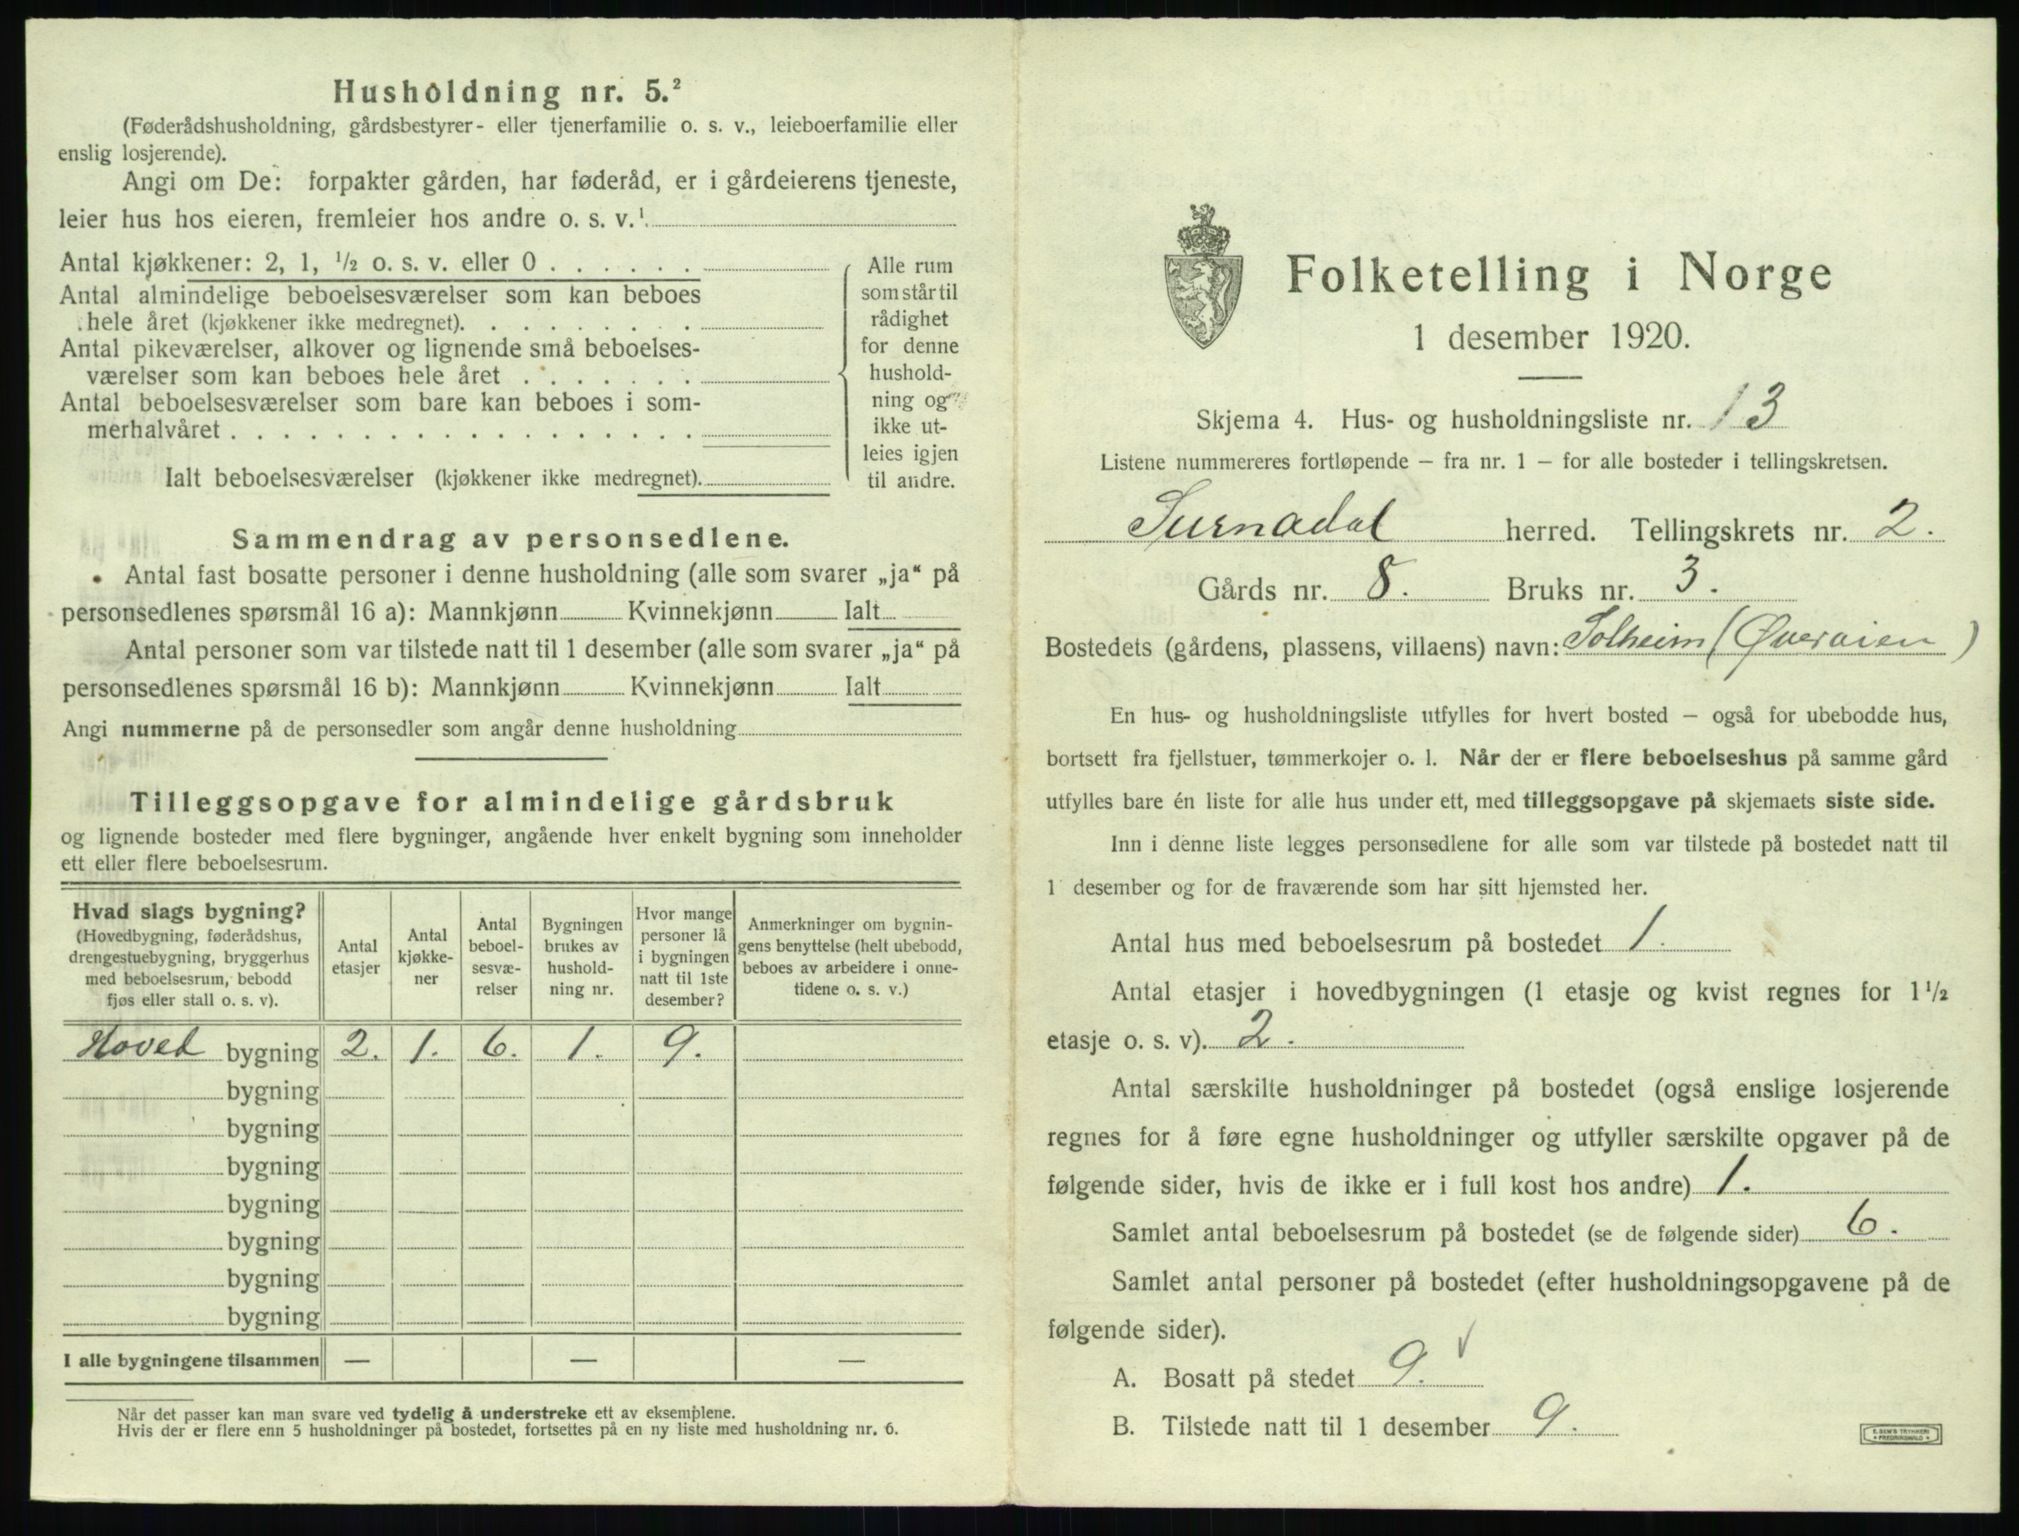 Husholdning nr. 5.²
(Føderådshusholdning, gårdsbestyrer- eller tjenerfamilie o. s. v., leieboerfamilie eller
enslig losjerende).
Angi om De: forpakter gården, har føderåd, er i gårdeierens tjeneste,
leier hus hos eieren, fremleier hos andre o. s. v.¹
Antal kjøkkener: 2, 1, ½ o. s. v. eller 0 . . . . . .
Antal almindelige beboelsesværelser som kan beboes
hele året (kjøkkener ikke medregnet). . . . . . . . .
Antal pikeværelser, alkover og lignende små beboelses-
værelser som kan beboes hele året . . . . . . .
Antal beboelsesværelser som bare kan beboes i som-
merhalvåret . . . . . . . . . . . . . . . . . .
Ialt beboelsesværelser (kjøkkener ikke medregnet).
Alle rum
som står til
rådighet
for denne
hushold-
ning og
ikke ut-
leies igjen
til andre.
Sammendrag av personsedlene.
Antal fast bosatte personer i denne husholdning (alle som svarer „ja“ på
personsedlenes spørsmål 16 a): Mannkjønn Kvinnekjønn Ialt
Antal personer som var tilstede natt til 1 desember (alle som svarer „ja“ på
personsedlenes spørsmål 16 b): Mannkjønn Kvinnekjønn Ialt
Angi nummerne på de personsedler som angår denne husholdning
Tilleggsopgave for almindelige gårdsbruk
og lignende bosteder med flere bygninger, angående hver enkelt bygning som inneholder
ett eller flere beboelsesrum.
Hvad slags bygning?
(Hovedbygning, føderådshus,
drengestuebygning, bryggerhus
med beboelsesrum, bebodd
fjøs eller stall o. s. v).
Antal
etasjer
Antal
kjøkke-
ner
Antal
beboel-
sesvæ-
relser
Bygningen
brukes av
hushold-
ning nr.
Hvor mange
personer lå
i bygningen
natt til 1ste
desember?
Anmerkninger om bygnin-
gens benyttelse (helt ubebodd,
beboes av arbeidere i onne-
tidene o. s. v.)
Hoved bygning 2. 1. 6. 1. 9.
bygning
bygning
bygning
bygning
bygning
bygning
bygning
I alle bygningene tilsammen — — —
Når det passer kan man svare ved tydelig å understreke ett av eksemplene.
Hvis der er flere enn 5 husholdninger på bostedet, fortsettes på en ny liste med husholdning nr. 6.
Folketelling i Norge
1 desember 1920.
Skjema 4. Hus- og husholdningsliste nr. 13
Listene nummereres fortløpende – fra nr. 1 – for alle bosteder i tellingskretsen.
Surnadal herred. Tellingskrets nr. 2.
Gårds nr. 8. Bruks nr. 3.
Bostedets (gårdens, plassens, villaens) navn: Solheim (Øveraien)
En hus- og husholdningsliste utfylles for hvert bosted – også for ubebodde hus,
bortsett fra fjellstuer, tømmerkojer o. l. Når der er flere beboelseshus på samme gård
utfylles bare én liste for alle hus under ett, med tilleggsopgave på skjemaets siste side.
Inn i denne liste legges personsedlene for alle som var tilstede på bostedet natt til
1 desember og for de fraværende som har sitt hjemsted her.
Antal hus med beboelsesrum på bostedet 1.
Antal etasjer i hovedbygningen (1 etasje og kvist regnes for 1½
etasje o. s. v). 2.
Antal særskilte husholdninger på bostedet (også enslige losjerende
regnes for å føre egne husholdninger og utfyller særskilte opgaver på de
følgende sider, hvis de ikke er i full kost hos andre) 1.
Samlet antal beboelsesrum på bostedet (se de følgende sider) 6.
Samlet antal personer på bostedet (efter husholdningsopgavene på de
følgende sider).
A. Bosatt på stedet 9. √
B. Tilstede natt til 1 desember 9.
E. SEM'S TRYKKERI
FREDRIKSHALD